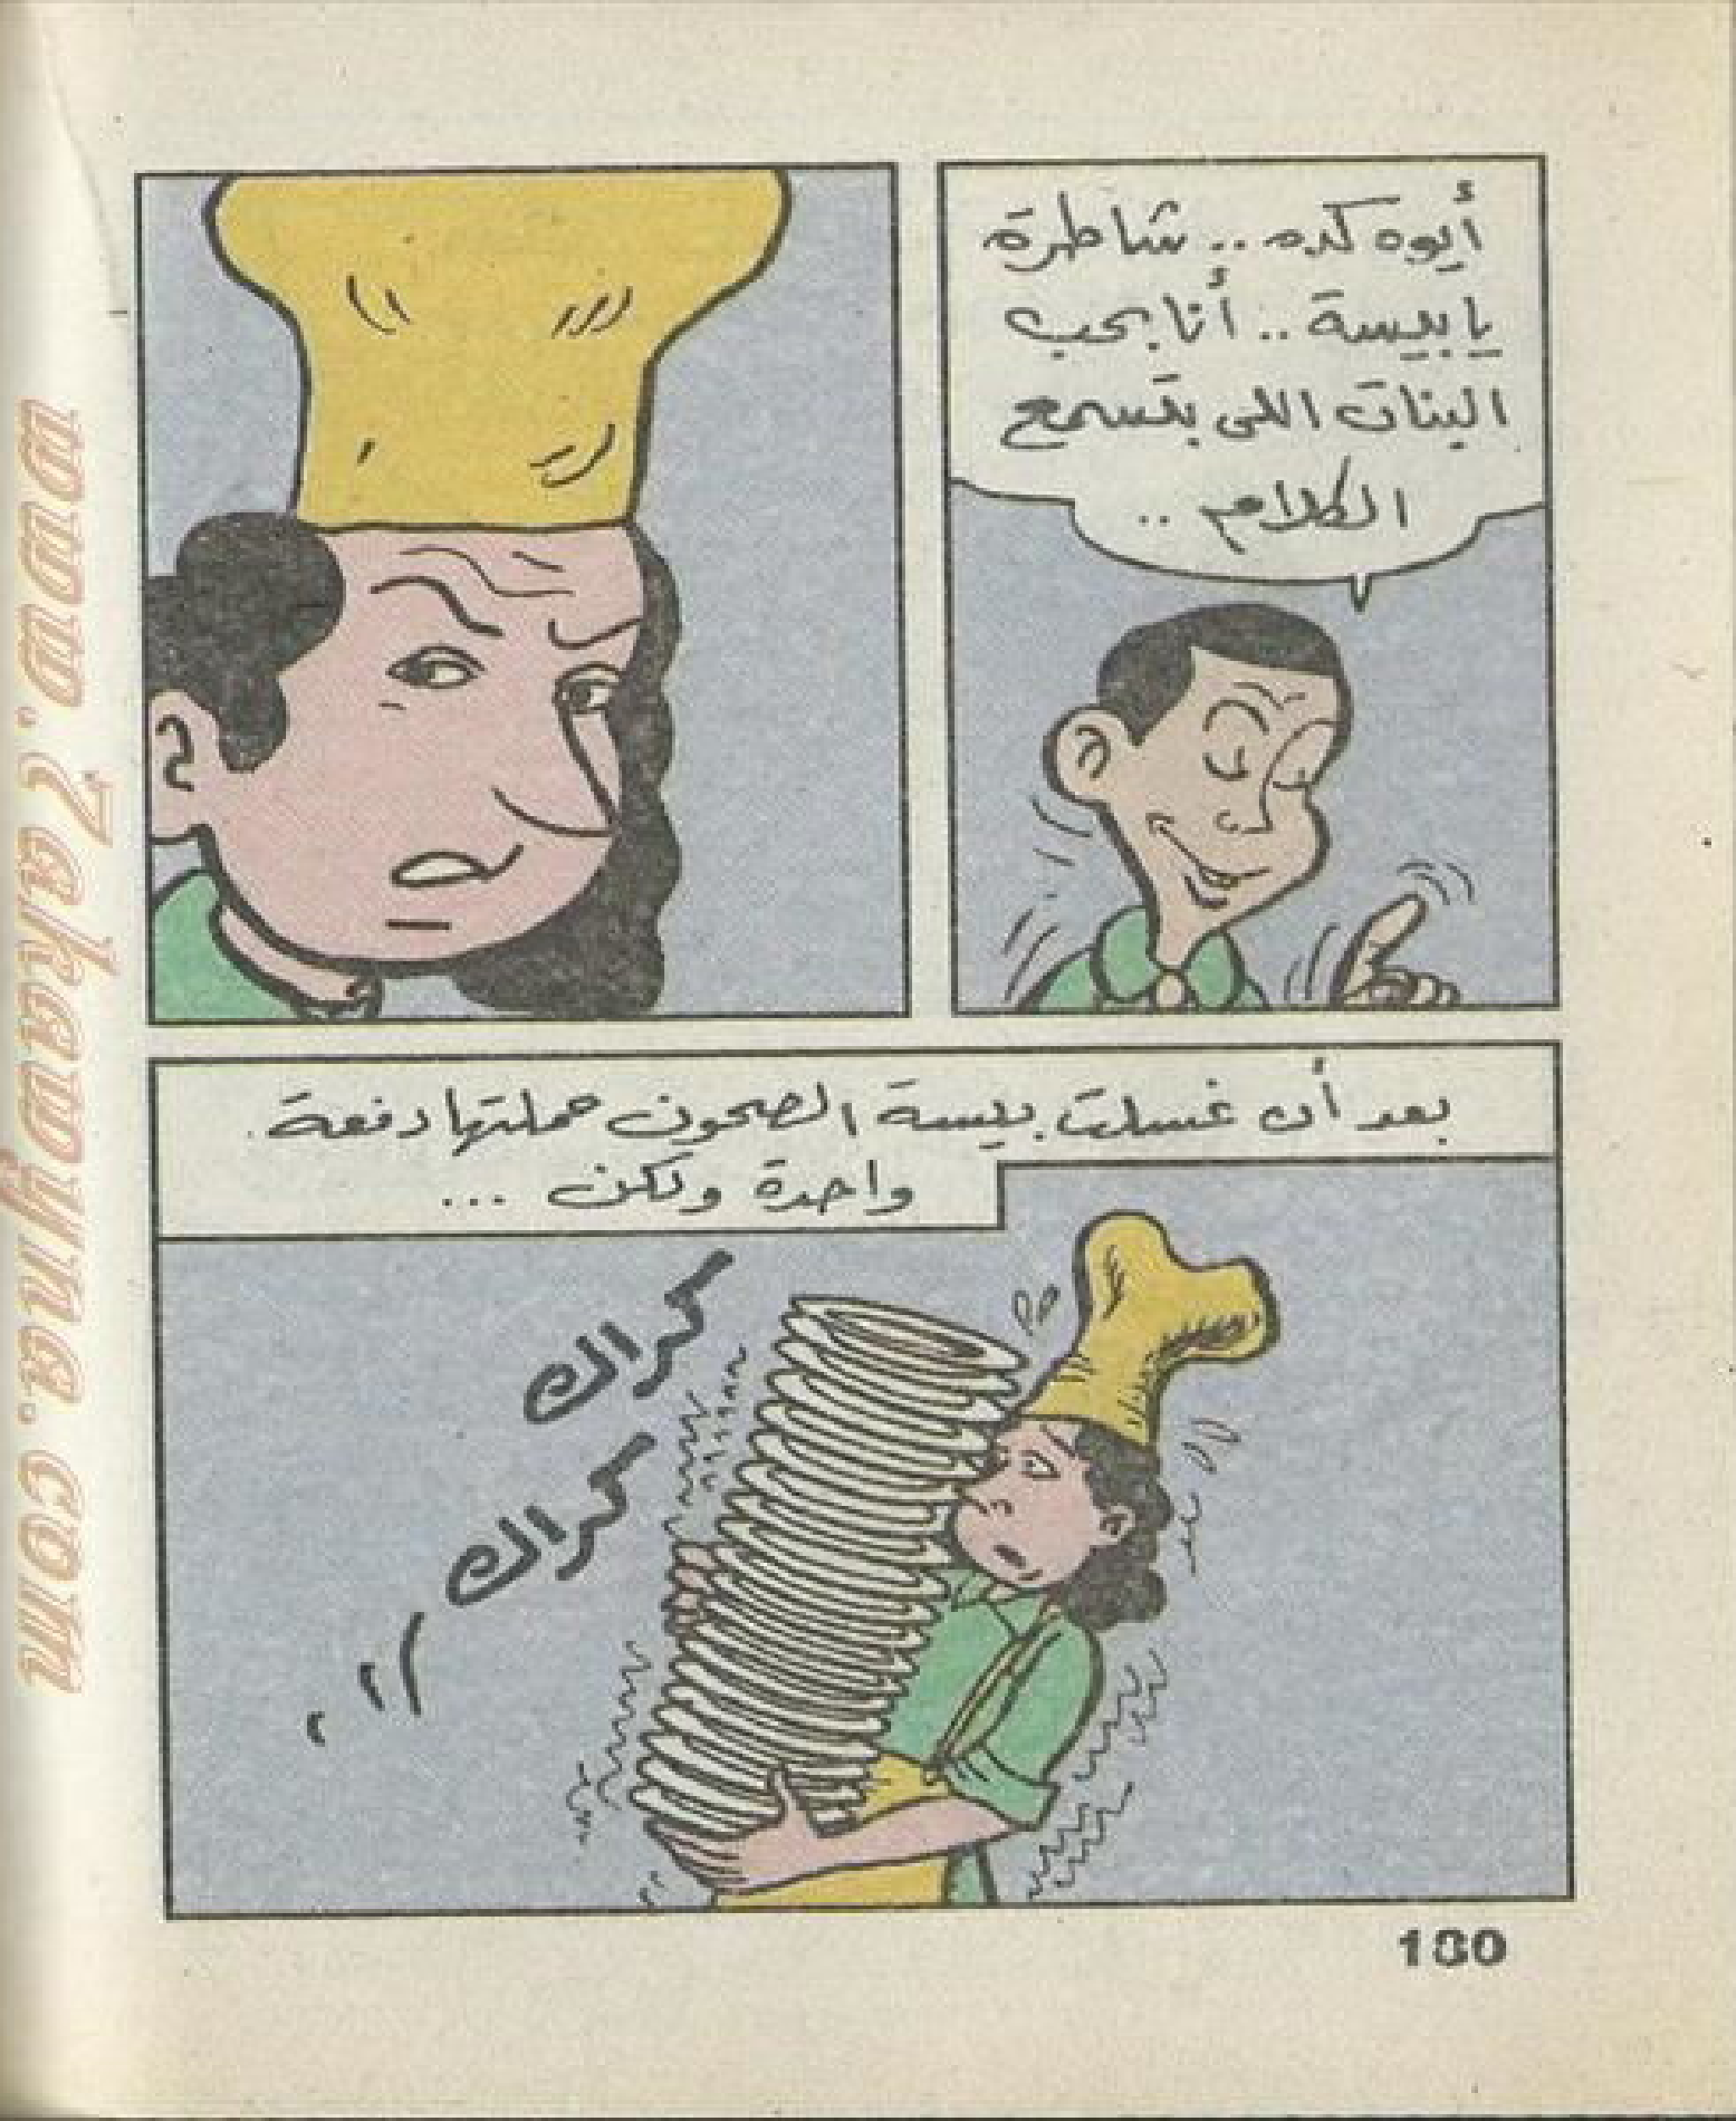 أيوه كده .. شاطرة
يا بيسة .. أنا بحب
البنات اللى بتسمع
الكلام ..
بعد أن غسلت بيسة الصحون حملتها دفعة
واحدة ولكن ...
كراك
كراك
www.2akaadyma.com